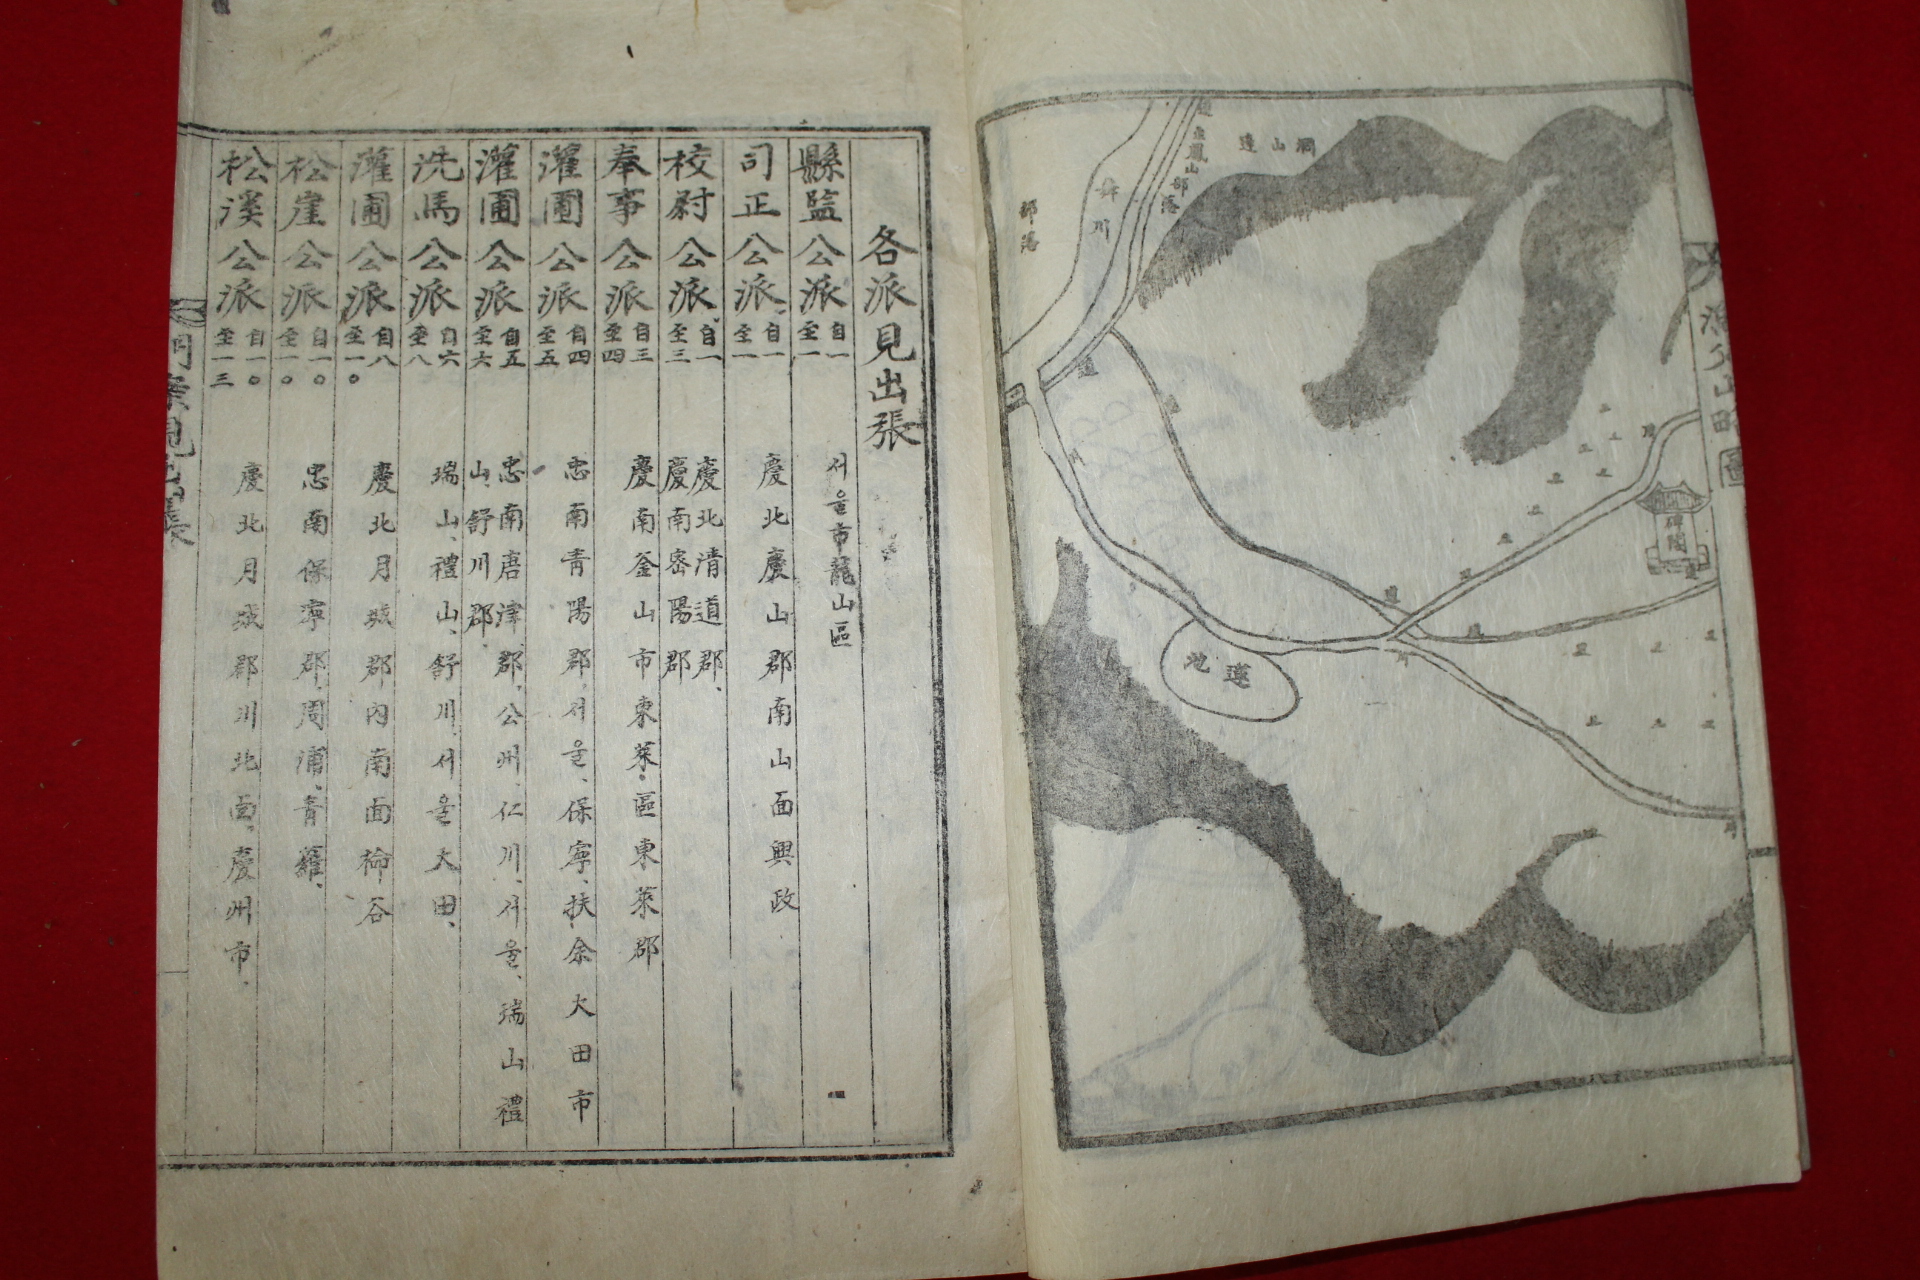 各派見出張
縣監公派 自一 至一 서울市龍山區
司正公派 自一 至一 慶北慶山郡南山面興政
校尉公派 自一 至三 慶北清道郡、慶南密陽郡
奉事公派 自三 至四 慶南釜山市東萊區東萊郡
灌圃公派 自四 至五 忠南青陽郡、서울、保寧、扶余大田市
灌圃公派 自五 至六 忠南唐津郡、公州、仁川、서울、瑞山禮山、舒川郡
洗馬公派 自六 至八 瑞山、禮山、舒川、서울大田、
灌圃公派 自八 至一〇 慶北月城郡內南面楡谷
松崖公派 自一〇 至一〇 忠南保寧郡、周浦、青蘿、
松溪公派 自一〇 至一三 慶北月城郡川北面、慶州市、
門案見出張
漁父山略圖
部落
舛川
道
部落
道山洞
道
川
道
川
碑閣
道
道
道
川
蓮池
川